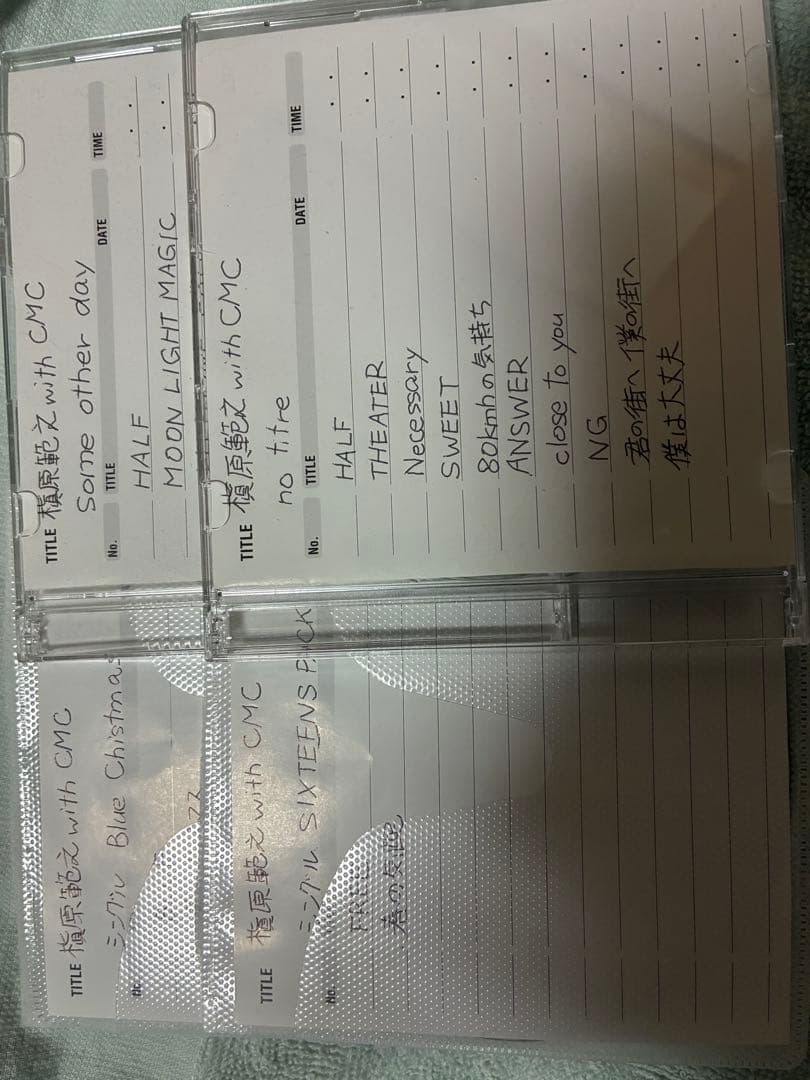 TITLE 槇原範之 with CMC
Some other day
No. TITLE DATE TIME
HALF
MOON LIGHT MAGIC
TITLE 槇原範之 with CMC
no titre
No. TITLE DATE TIME
HALF
THEATER
Necessary
SWEET
80kmhの気持ち
ANSWER
close to you
NG
君の街へ 僕の街へ
僕は大丈夫
TITLE 槇原範之 with CMC
シングル Blue Chistmas
No.
TITLE 槇原範之 with CMC
シングル SIXTEENS
No.
FREE
春の気配